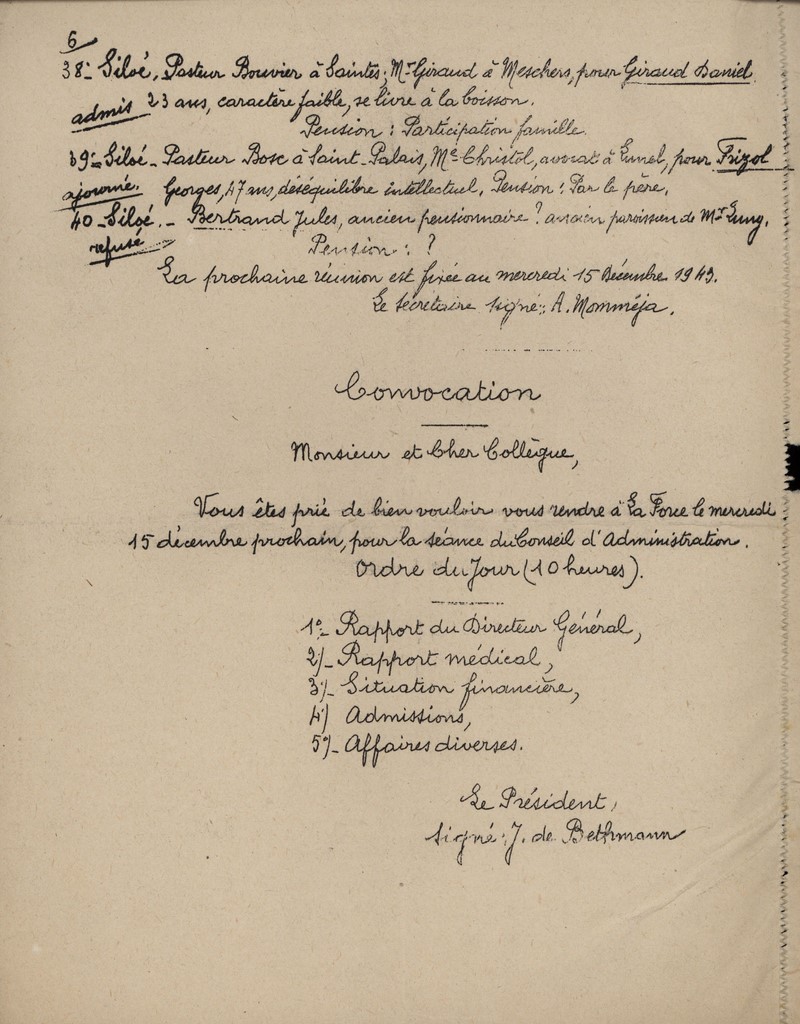 6
38- Siloé, Pasteur Bouvier à Saintes; Mr Giraud à Meschers, pour Giraud Daniel
admis 23 ans, caractère faible, se livre à la boisson.
Pension : Participation famille.
39- Siloé - Pasteur Bosc à Saint-Palais, Me Christol, avocat à pour Frizol
ajourné. Georges, 47 ans, déséquilibre intellectuel, Pension : Par le père,
40- Siloé. - Bertrand Jules, ancien pensionnaire ? ancien paroissien de Mr Lung,
refusé
Pension : ?
La prochaine réunion est fixée au mercredi 15 Décembre 1943.
Le Secrétaire signé : A. Momméja.
Convocation
Monsieur et Cher Collègue,
Vous êtes prié de bien vouloir vous rendre à La Force le mercredi
15 décembre prochain, pour la séance du Conseil d'Administration.
Ordre du Jour (10 heures).
1°- Rapport du Directeur Général,
2/- Rapport médical,
3/- Situation financière,
4/ Admissions,
5/- Affaires diverses.
Le Président,
signé : J. de Bethmann